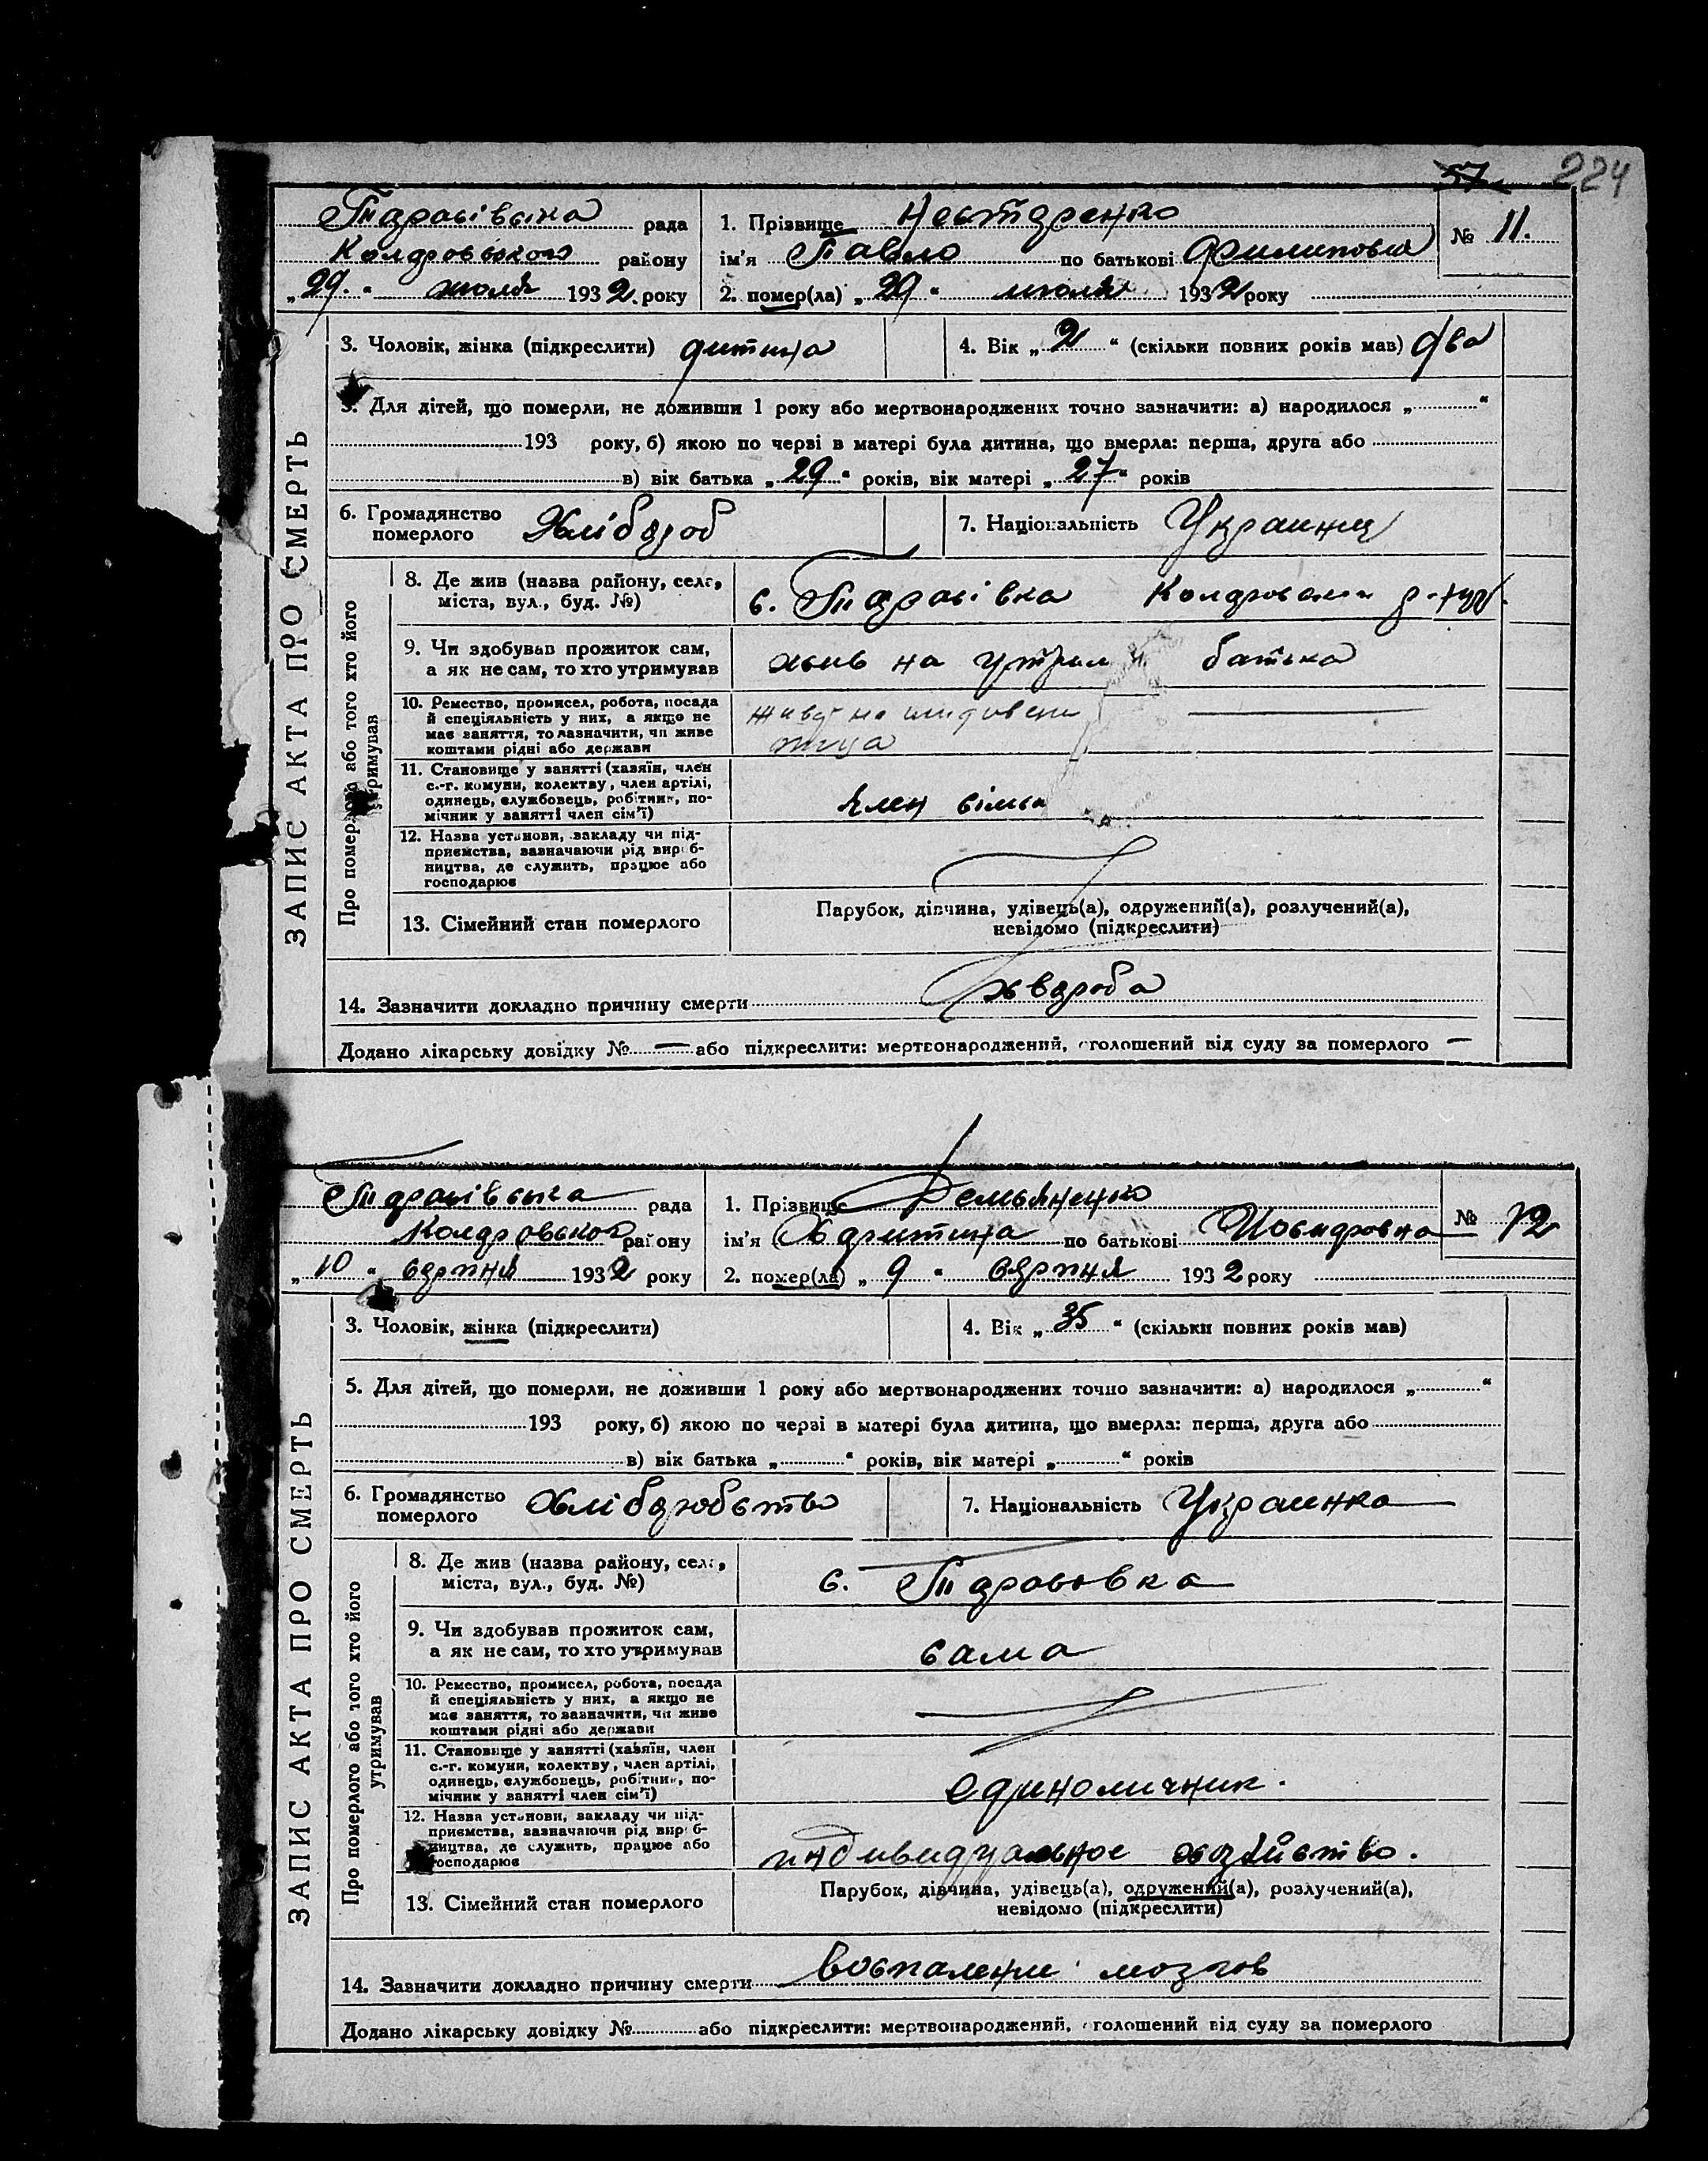 57 224
рада
Колдровського району
„ 29. “ июля 1932. року
1. Прізвище Нестеренко
ім’я Павло по батькові Филипович
2. помер(ла) „ 29 “ июля 1932 року
№ 11.
ЗАПИС АКТА ПРО СМЕРТЬ
3. Чоловік, жінка (підкреслити) дитина
4. Вік „ 2 “ (скільки повних років мав) два
5. Для дітей, що померли, не доживши 1 року або мертвонароджених точно зазначити: а) народилося „ “
193 року, б) якою по черзі в матері була дитина, що вмерла: перша, друга або
в) вік батька „ 29 “ років, вік матері „ 27 “ років
6. Громадянство
померлого Хлібороб
7. Національність Украинец
Про померлого або того хто його
утримував
8. Де жив (назва району, села,
міста, вул., буд. №)
с.
9. Чи здобував прожиток сам,
а як не сам, то хто утримував
жив на утрим батька
10. Ремество, промисел, робота, посада
й спеціяльність у них, а якщо не
має заняття, то зазначити, чи живе
коштами рідні або держави
отца
11. Становище у занятті (хазяїн, член
с.-г. комуни, колектву, член артілі,
одинець, службовець, робітник, по-
мічник у занятті член сім’ї)
член сімьи
12. Назва установи, закладу чи під-
приємства, зазначаючи рід вироб-
ництва, де служить, працює або
господарює
13. Сімейний стан померлого
Парубок, дівчина, удівець(а), одружений(а), розлучений(а),
невідомо (підкреслити)
14. Зазначити докладно причину смерти хвороба
Додано лікарську довідку № — або підкреслити: мертвонароджений, оголошений від суду за померлого —
рада
Колдровськог району
„ 10 “ серпня 1932 року
1. Прізвище Демьяненко
ім’я Хдритина по батькові
2. помер(ла) „ 9 “ серпня 1932 року
№ 12
ЗАПИС АКТА ПРО СМЕРТЬ
3. Чоловік, жінка (підкреслити)
4. Вік „ 35 “ (скільки повних років мав)
5. Для дітей, що померли, не доживши 1 року або мертвонароджених точно зазначити: а) народилося „ “
193 року, б) якою по черзі в матері була дитина, що вмерла: перша, друга або
в) вік батька „ “ років, вік матері „ “ років
6. Громадянство
померлого
7. Національність Украинка
Про померлого або того хто його
утримував
8. Де жив (назва району, села,
міста, вул., буд. №)
с.
9. Чи здобував прожиток сам,
а як не сам, то хто утримував
сама
10. Ремество, промисел, робота, посада
й спеціяльність у них, а якщо не
має заняття, то зазначити, чи живе
коштами рідні або держави
11. Становище у занятті (хазяїн, член
с.-г. комуни, колектву, член артілі,
одинець, службовець, робітник, по-
мічник у занятті член сім’ї)
единоличник.
12. Назва установи, закладу чи під-
приємства, зазначаючи рід вироб-
ництва, де служить, працює або
господарює
индивидуальное хозяйство.
13. Сімейний стан померлого
Парубок, дівчина, удівець(а), одружений(а), розлучений(а),
невідомо (підкреслити)
14. Зазначити докладно причину смерти воспаление мозгов
Додано лікарську довідку № або підкреслити: мертвонароджений, оголошений від суду за померлого